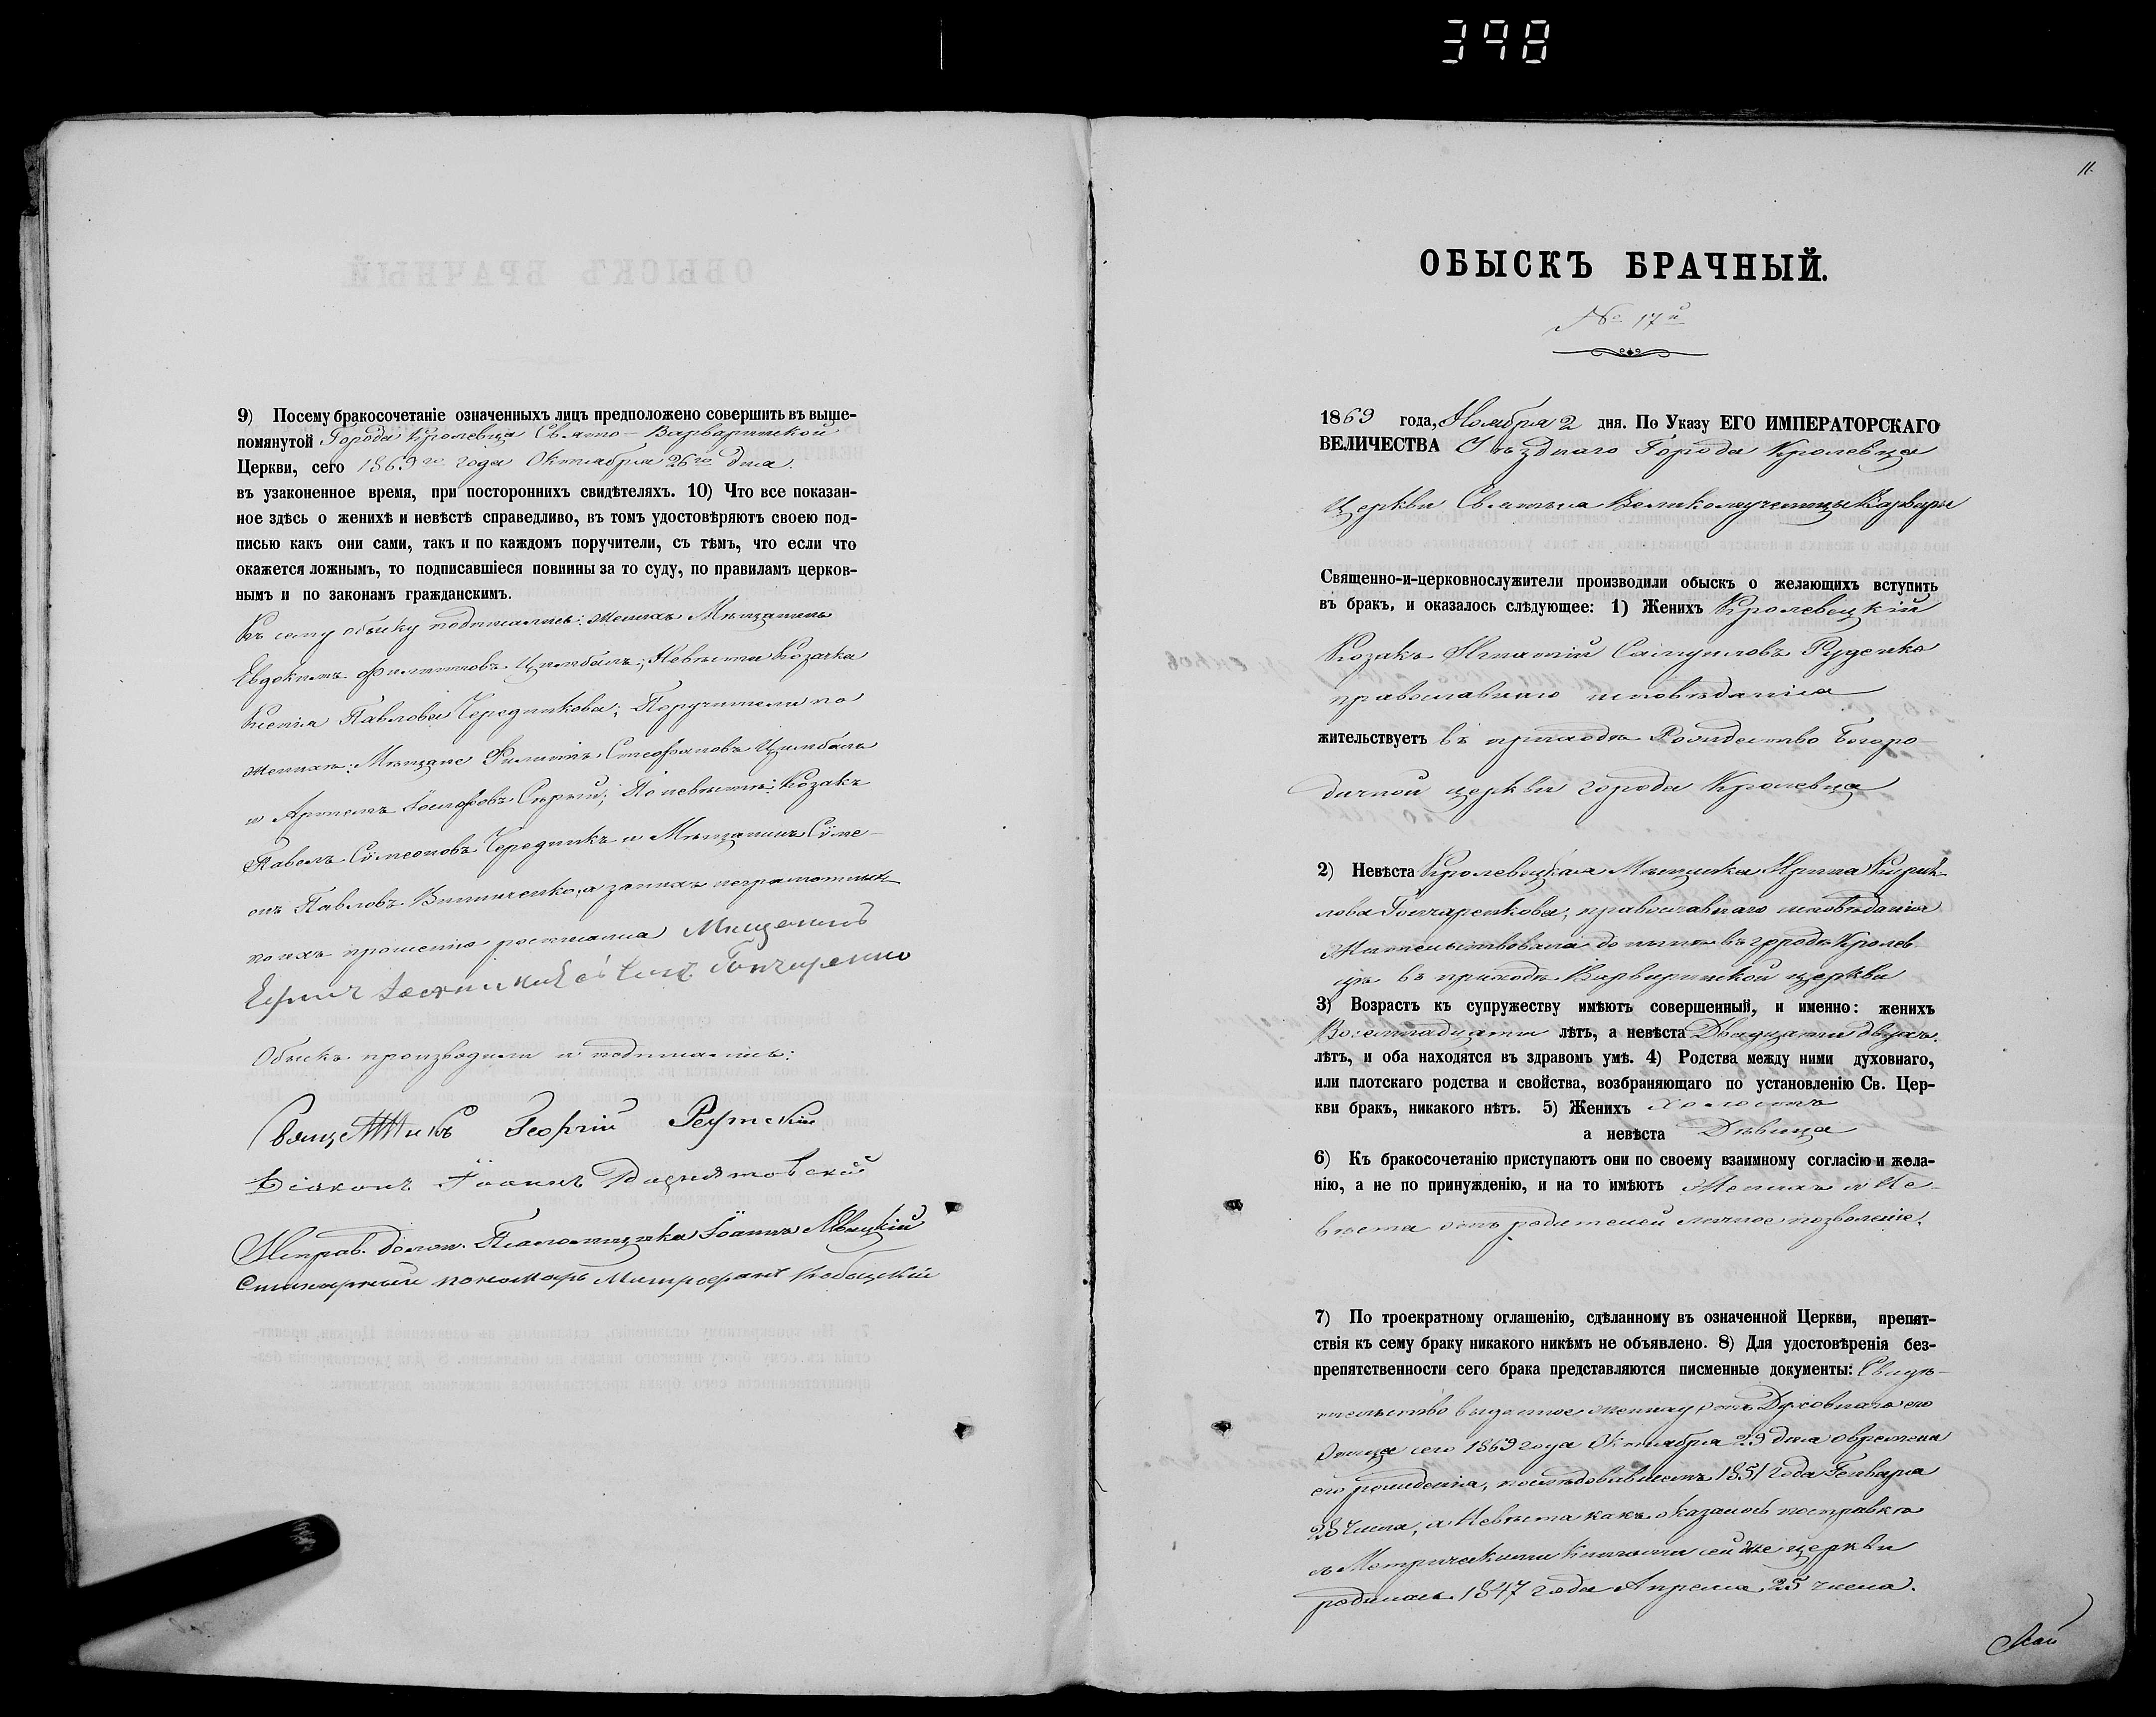 398
9) Посему бракосочетаніе означенныхъ лицъ предположено совершить въ выше-
помянутой Города Кролевца Свято-Варваринской
Церкви, сего 1869го года Октября 26го дня.
въ узаконенное время, при постороннихъ свидѣтеляхъ. 10) Что все показан-
ное здѣсь о женихѣ и невѣстѣ справедливо, въ томъ удостовѣряютъ своею под-
писью какъ они сами, такъ и по каждомъ поручители, съ тѣмъ, что если что
окажется ложнымъ, то подписавшіеся повинны за то суду, по правиламъ церков-
нымъ и по законамъ гражданскимъ.
Къ сему обыску подписались: женихъ Мѣщанинъ
Евдокимъ Филиповъ Цимбалъ; Невѣста Козачка
Ксенія Павлова Чередникова; Поручители по
женихѣ: Мѣщане Филипъ Стефановъ Цимбалъ
и Артемъ Іосифовъ Сѣрый; По невѣстѣ: Козакъ
Павелъ Сѵмеоновъ Чередникъ и Мѣщанинъ Сѵме-
онъ Павловъ Винниченко, а за нихъ неграмотныхъ
по ихъ прошенію росписался Мищенинъ
Гончаренко
Обыскъ производили и подписались:
Священникъ Георгій Реутскій
Діаконъ Іоаннъ
Исправ. долж. Псаломщика Іоаннъ Явецкій
пономарь Митрофанъ
11.
ОБЫСКЪ БРАЧНЫЙ.
№ 17й
1869 года, Ноября 2 дня. По Указу ЕГО ИМПЕРАТОРСКАГО
ВЕЛИЧЕСТВА Уѣзднаго Города Кролевца
Церкви Святыя Великомученицы Варвары
Священно-и-церковнослужители производили обыскъ о желающихъ вступить
въ бракъ, и оказалось слѣдующее: 1) Женихъ Кролевецкій
Козакъ Игнатій Самуиловъ Руденко
православнаго исповѣданія
жительствуетъ въ приходѣ Рождество Богоро-
дичной церкви города Кролевца
2) Невѣста Кролевецкая Мѣщанка Ирина Кирил-
лова Гончаренкова, православнаго исповѣданія
Жительствовала до нынѣ въ городѣ Кролев
цѣ въ приходѣ Варваринской церкви
3) Возрастъ къ супружеству имѣютъ совершенный, и именно: женихъ
Восемнадцати лѣтъ, а невѣста Двадцати двухъ.
лѣтъ, и оба находятся въ здравомъ умѣ. 4) Родства между ними духовнаго,
или плотскаго родства и свойства, возбраняющаго по установленію Св. Цер-
кви бракъ, никакого нѣтъ. 5) Женихъ Холостъ
а невѣста Дѣвица
6) Къ бракосочетанію приступаютъ они по своему взаимному согласію и жела-
нію, а не по принужденію, и на то имѣютъ Женихъ и Не-
вѣста отъ родителей личное позволеніе.
7) По троекратному оглашенію, сдѣланному въ означенной Церкви, препят-
ствія къ сему браку никакого никѣмъ не объявлено. 8) Для удостовѣренія без-
препятственности сего брака представляются писменные документы: Свидѣ-
тельство выданное жениху отъ Духовнаго его
Отца сего 1869 года Октября 29 дня о времени
его рожденія, послѣдовавшемъ 1851 года Генваря
28 числа, а Невѣста какъ оказалось по справкѣ
съ Метрическими Книгами сей же церкви
родилась 1847 года Апреля 25 числа.